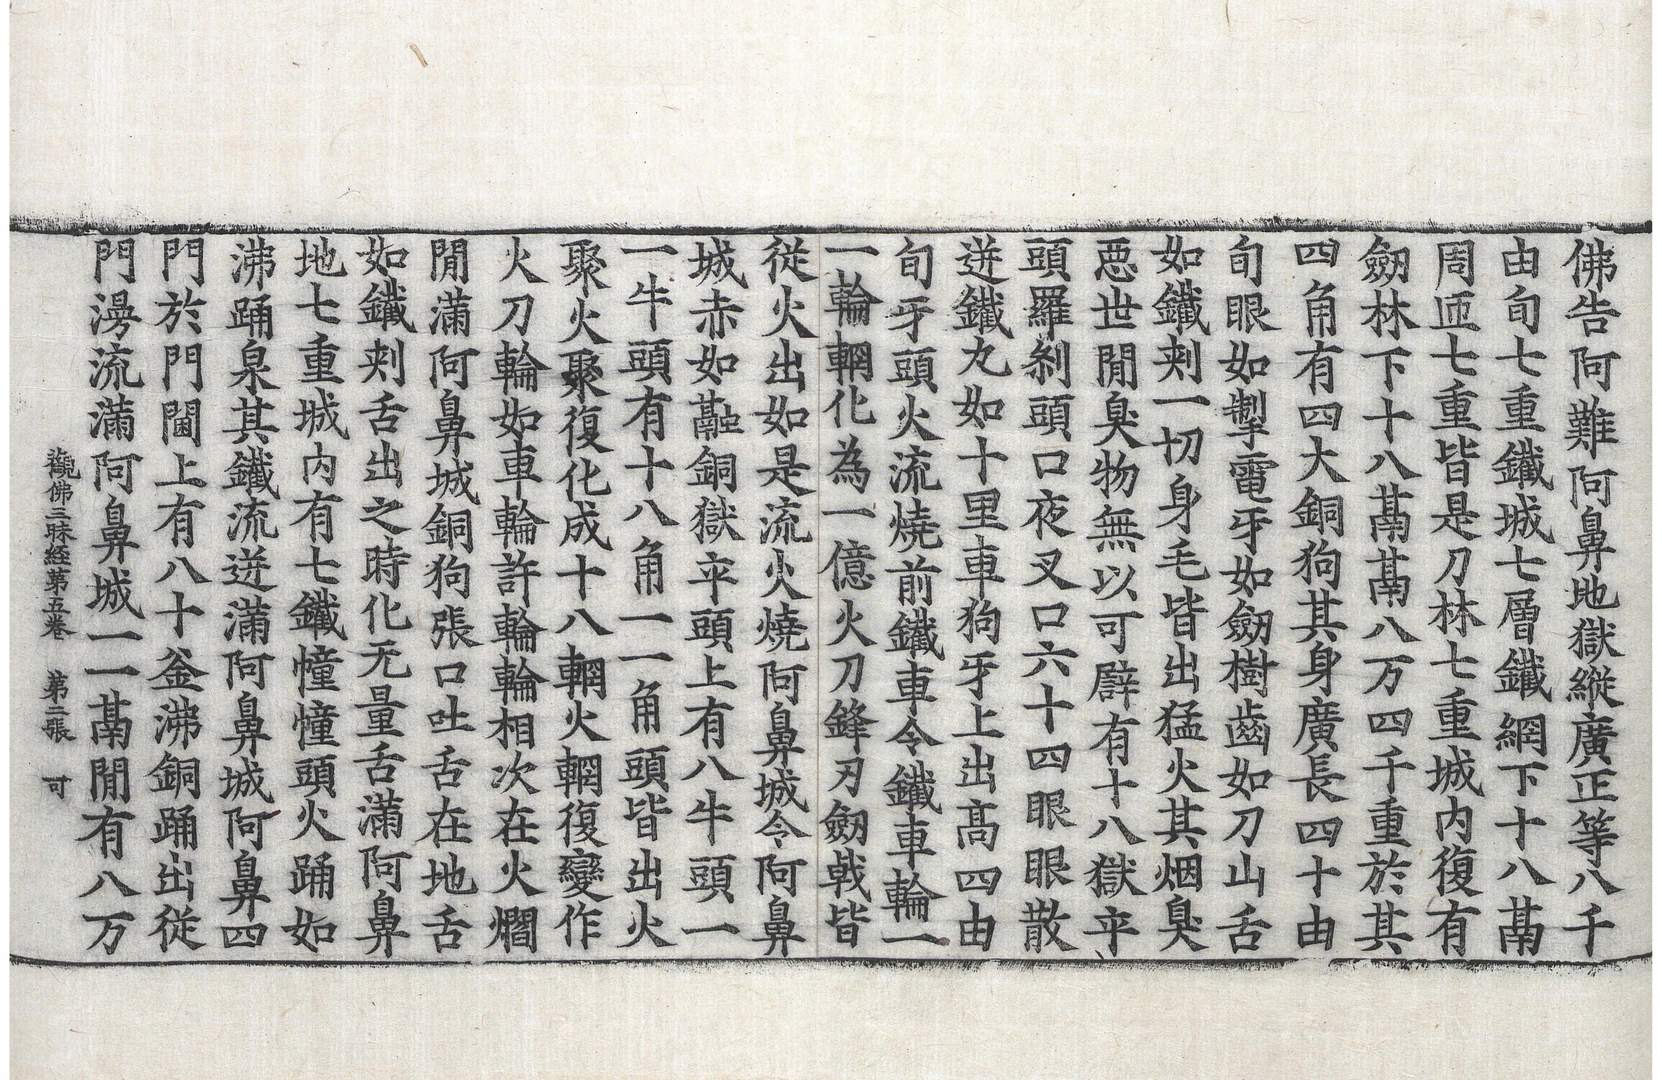 佛告阿難阿鼻地獄縱廣正等八千
由旬七重鐵城七層鐵網下十八鬲
周匝七重皆是刀林七重城内復有
劒林下十八鬲鬲八万四千重於其
四角有四大銅狗其身廣長四十由
旬眼如掣電牙如劒樹齒如刀山舌
如鐵刺一切身毛皆出猛火其烟臭
惡世間臭物無以可譬有十八獄卒
頭羅刹頭口夜叉口六十四眼眼散
迸鐵丸如十里車狗牙上出高四由
旬牙頭火流燒前鐵車令鐵車輪一
一輪輞化為一億火刀鋒刃劒戟皆
從火出如是流火燒阿鼻城令阿鼻
城赤如融銅獄卒頭上有八牛頭一
一牛頭有十八角一一角頭皆出火
聚火聚復化成十八輞火輞復變作
火刀輪如車輪許輪輪相次在火爓
間滿阿鼻城銅狗張口吐舌在地舌
如鐵刺舌出之時化无量舌滿阿鼻
地七重城内有七鐵幢幢頭火踊如
沸踊泉其鐵流迸滿阿鼻城阿鼻四
門於門閫上有八十釜沸銅踊出從
門漫流滿阿鼻城一一鬲間有八万
觀佛三昧經第五卷　第二張　可